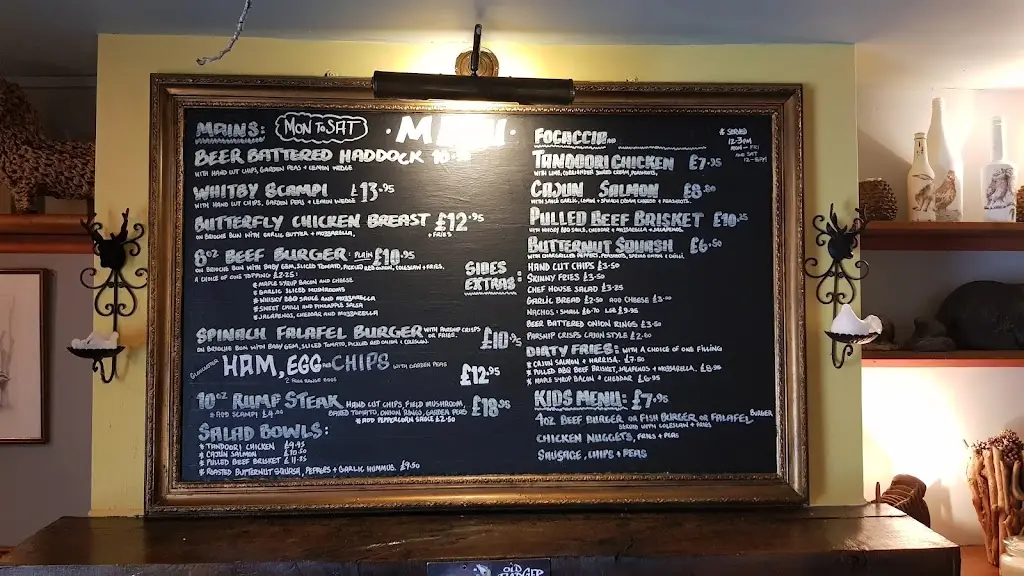 MAINS: MON TO SAT
BEER BATTERED HADDOCK
WITH HAND CUT CHIPS, GARDEN PEAS + LEMON WEDGE
WHITBY SCAMPI £13.95
WITH HAND CUT CHIPS, GARDEN PEAS + LEMON WEDGE
BUTTERFLY CHICKEN BREAST £12.95
ON BRIOCHE BUN WITH GARLIC BUTTER + MOZZARELLA, + FRIES
8oz BEEF BURGER: PLAIN £10.95
ON BRIOCHE BUN WITH BABY GEM, SLICED TOMATO, PICKLED RED ONION, COLESLAW + FRIES,
A CHOICE OF ONE TOPPING £2.25:
* MAPLE SYRUP BACON AND CHEESE
* GARLIC SLICED MUSHROOMS
* WHISKY BBQ SAUCE AND MOZZARELLA
* SWEET CHILLI AND PINEAPPLE SALSA
* JALAPENOS, CHEDDAR AND MOZZARELLA
SPINACH FALAFEL BURGER WITH PARSNIP CRISPS OR FRIES. £10.95
ON BRIOCHE BUN WITH BABY GEM, SLICED TOMATO, PICKLED RED ONION + COLESLAW
GLOUCESTER HAM, EGG AND CHIPS WITH GARDEN PEAS £12.95
2 FREE RANGE EGGS
10oz RUMP STEAK HAND CUT CHIPS, FIELD MUSHROOM, £18.95
* ADD SCAMPI £4.00 BAKED TOMATO, ONION RINGS, GARDEN PEAS
* ADD PEPPERCORN SAUCE £2.50
SALAD BOWLS:
* TANDOORI CHICKEN £9.95
* CAJUN SALMON
* PULLED BEEF BRISKET
* ROASTED BUTTERNUT SQUASH, PEPPERS + GARLIC HUMMUS £9.50
FOCACCIA * SERVED
12-3PM
MON - FRI
AND SAT
TANDOORI CHICKEN £7.95
CAJUN SALMON
PULLED BEEF BRISKET
BUTTERNUT SQUASH £6.50
SIDES
EXTRAS:
HAND CUT CHIPS £3.50
SKINNY FRIES £3.50
CHEF HOUSE SALAD £3.25
GARLIC BREAD £2.50 ADD CHEESE £3.00
NACHOS: SMALL £6.70 LGE £9.95
BEER BATTERED ONION RINGS £3.50
PARSNIP CRISPS CAJUN STYLE £2.50
DIRTY FRIES: WITH A CHOICE OF ONE FILLING
* CAJUN SALMON + HARRISA. £7.50
* PULLED BBQ BEEF BRISKET, JALAPENOS + MOZZARELLA.
* MAPLE SYRUP BACON + CHEDDAR £6.95
KIDS MENU: £7.95
4oz BEEF BURGER OR FISH BURGER OR FALAFEL BURGER
SERVED WITH COLESLAW + FRIES
CHICKEN NUGGETS, FRIES + PEAS
SAUSAGE, CHIPS + PEAS
OLD
BADGER